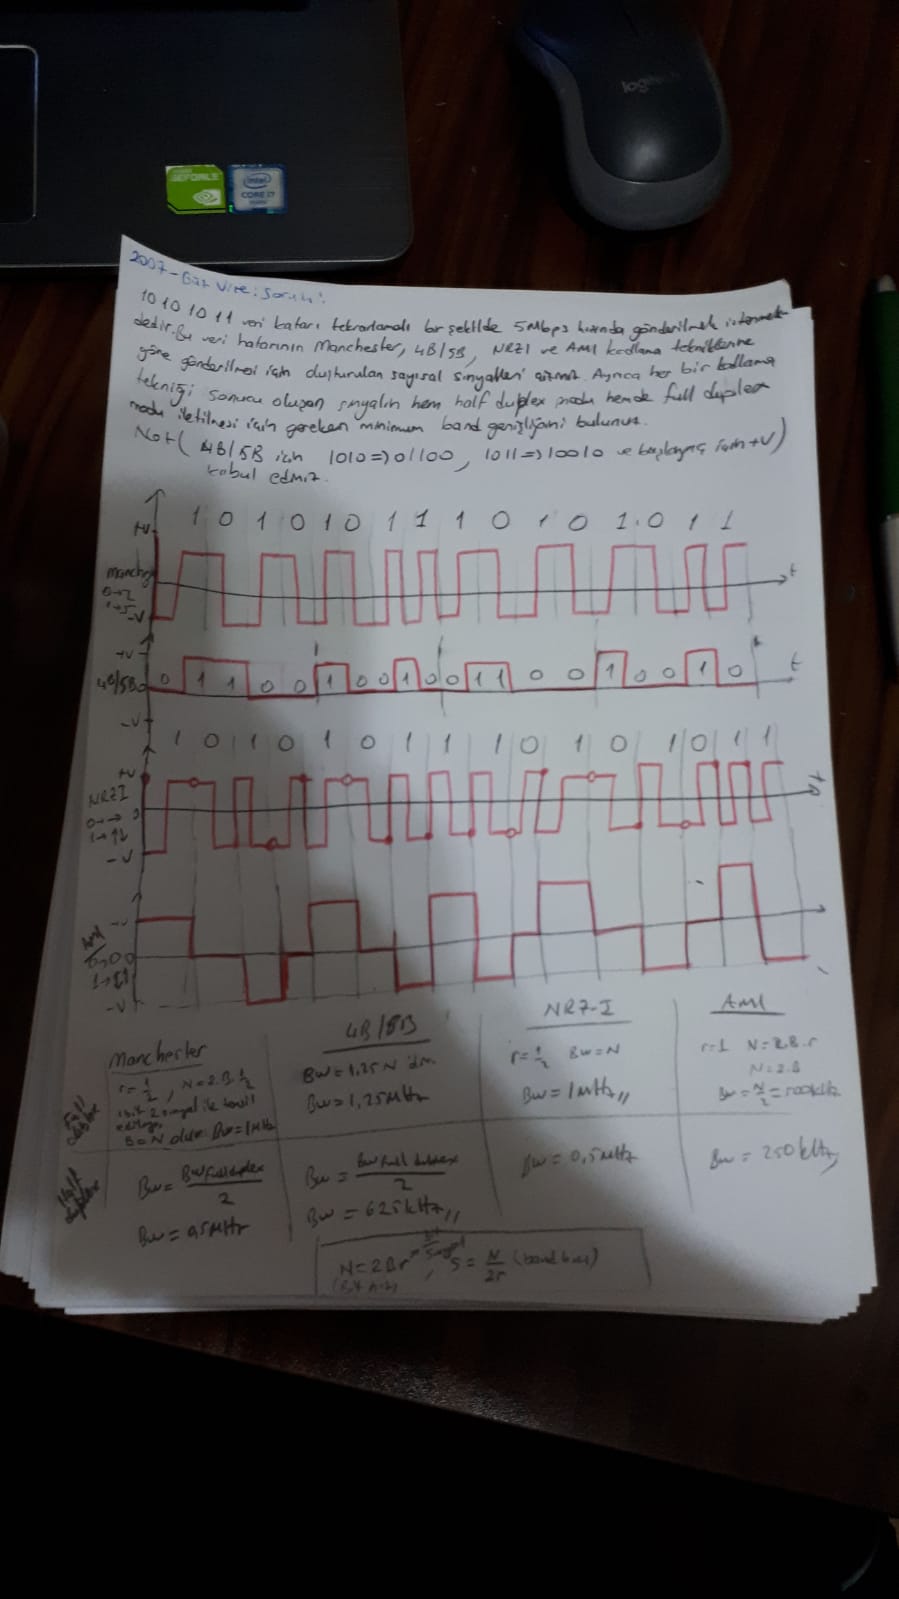 logitech
GEFORCE
intel
CORE i7
2007-
10 10 10 11 veri katarı tekrarlamalı bir şekilde 5Mbps hızında gönderilmek istenmek-
tedir. Bu veri katarının Manchester, 4B/5B, NRZI ve AMI kodlama tekniklerine
göre gönderilmesi için oluşturulan sayısal sinyalleri çiziniz. Ayrıca her bir kodlama
tekniği sonucu oluşan sinyalin hem half duplex modu hemde full duplex
modu iletilmesi için gereken minimum band genişliğini bulunuz.
Not( 4B/5B için 1010=>01100, 1011=>10010 ve başlangıç için +V)
kabul ediniz.
+V 1 0 1 0 1 0 1 1 1 0 1 0 1.0 1 1
t
-V
+V
4B/5B 0 1 1 0 0 1 0 0 1 0 0 1 1 0 0 1 0 0 1 0 t
-V
1 0 1 0 1 0 1 1 1 0 1 0 1 0 1 1
+V
NRZI
-V
AMI
-V
Manchester 4B/5B NRZ-I AMI
Full duplex
r=1/2, N=2.B.1/2
B=N olur. Bw=1MHz
Bw=1,25N 'dir.
Bw=1,25MHz
r=1/2 Bw=N
Bw=1MHz//
r=1 N=2.B.r
N=2.B
Bw=N/2=500kHz
Half duplex
Bw=Bw full duplex/2
Bw=0,5MHz
Bw=Bw full duplex/2
Bw=625kHz//
Bw=0,5MHz
Bw=250kHz
N=2Br, S=N/2r